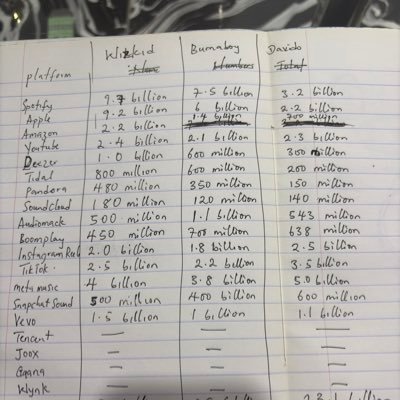 platform Wizkid Burnaboy Davido
Spotify 9.7 billion 7.5 billion 3.2 billion
Apple 9.2 billion 6 billion 2.2 billion
Amazon 2.2 billion 1.4 billion 700 million
Youtube 2.4 billion 2.1 billion 2.3 billion
Deezer 1.0 billion 600 million 300 million
Tidal 800 million 600 million 200 million
Pandora 480 million 350 million 150 million
SoundCloud 180 million 120 million 140 million
Audiomack 500 million 1.1 billion 543 million
Boomplay 450 million 700 million 638 million
Instagram Reels 2.0 billion 1.8 billion 2.5 billion
TikTok 2.5 billion 2.2 billion 3.5 billion
meta music 4 billion 3.8 billion 5.0 billion
Snapchat Sound 500 million 400 million 600 million
Vevo 1.5 billion 1 billion 1.1 billion
Tencent — — —
Joox — — —
Gaana — — —
Wynk — — —